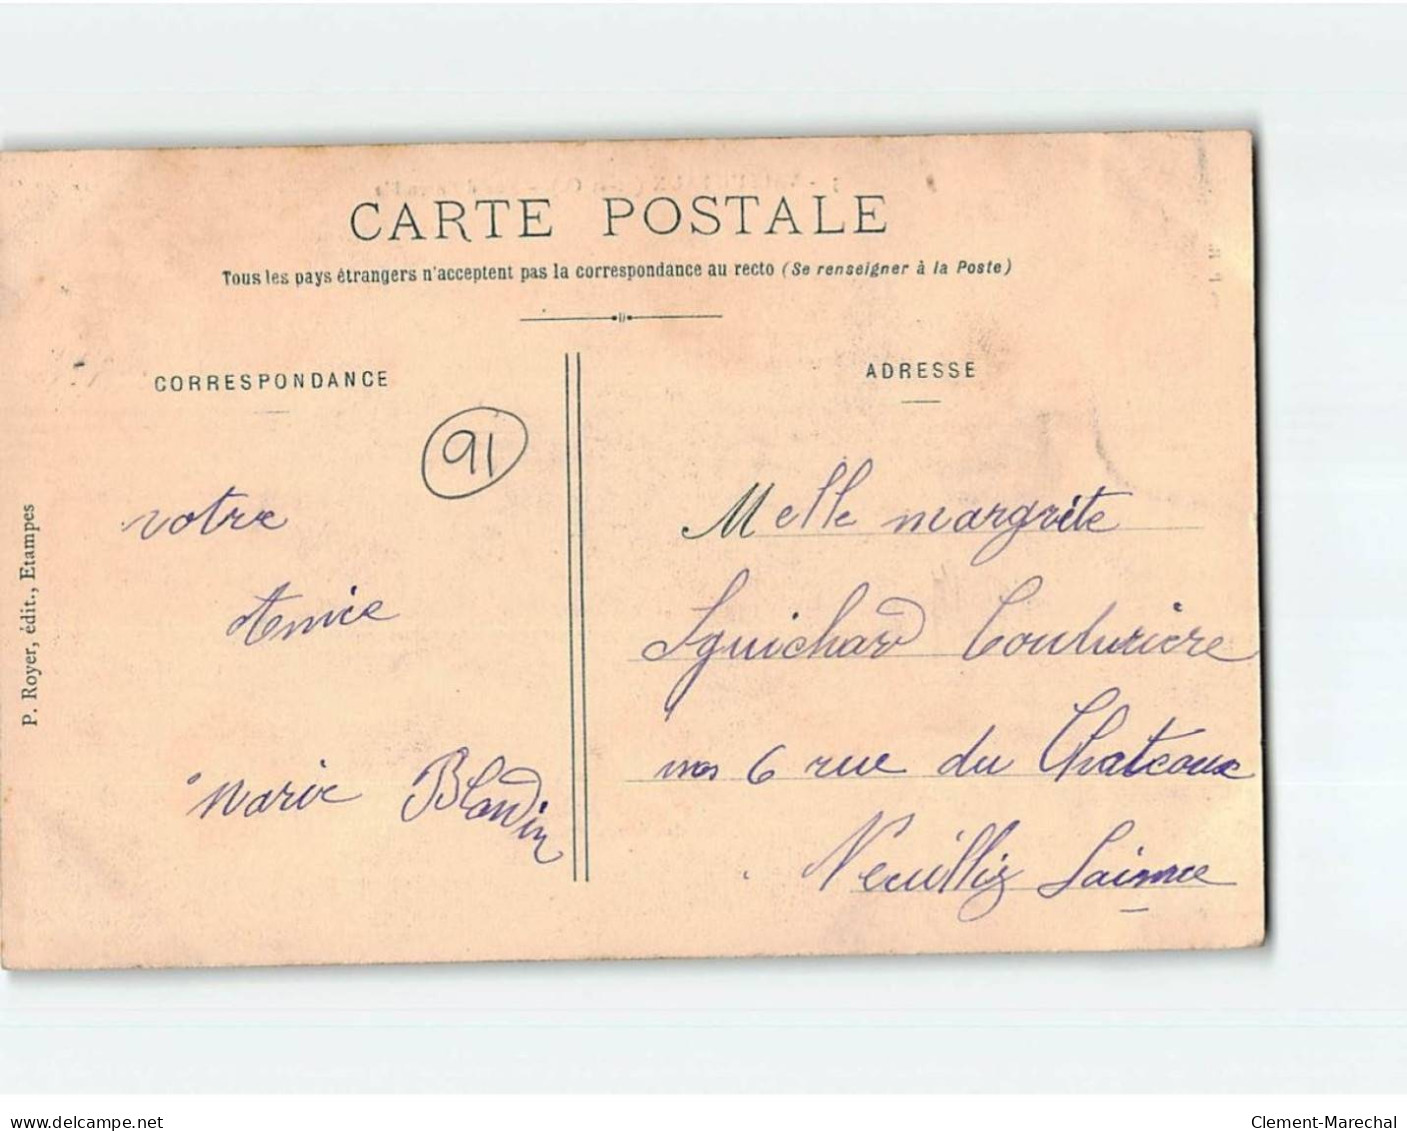 CARTE POSTALE
Tous les pays étrangers n'acceptent pas la correspondance au recto (Se renseigner à la Poste)
CORRESPONDANCE
ADRESSE
91
P. Royer, édit., Etampes
votre
Amie
Marie Blandin
Melle margrite
Guichard Couturiere
6 rue du Chateaux
Neuilliz
delcampe.net
Clement-Marechal